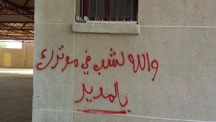 والله لشب في موترك
يا مدير